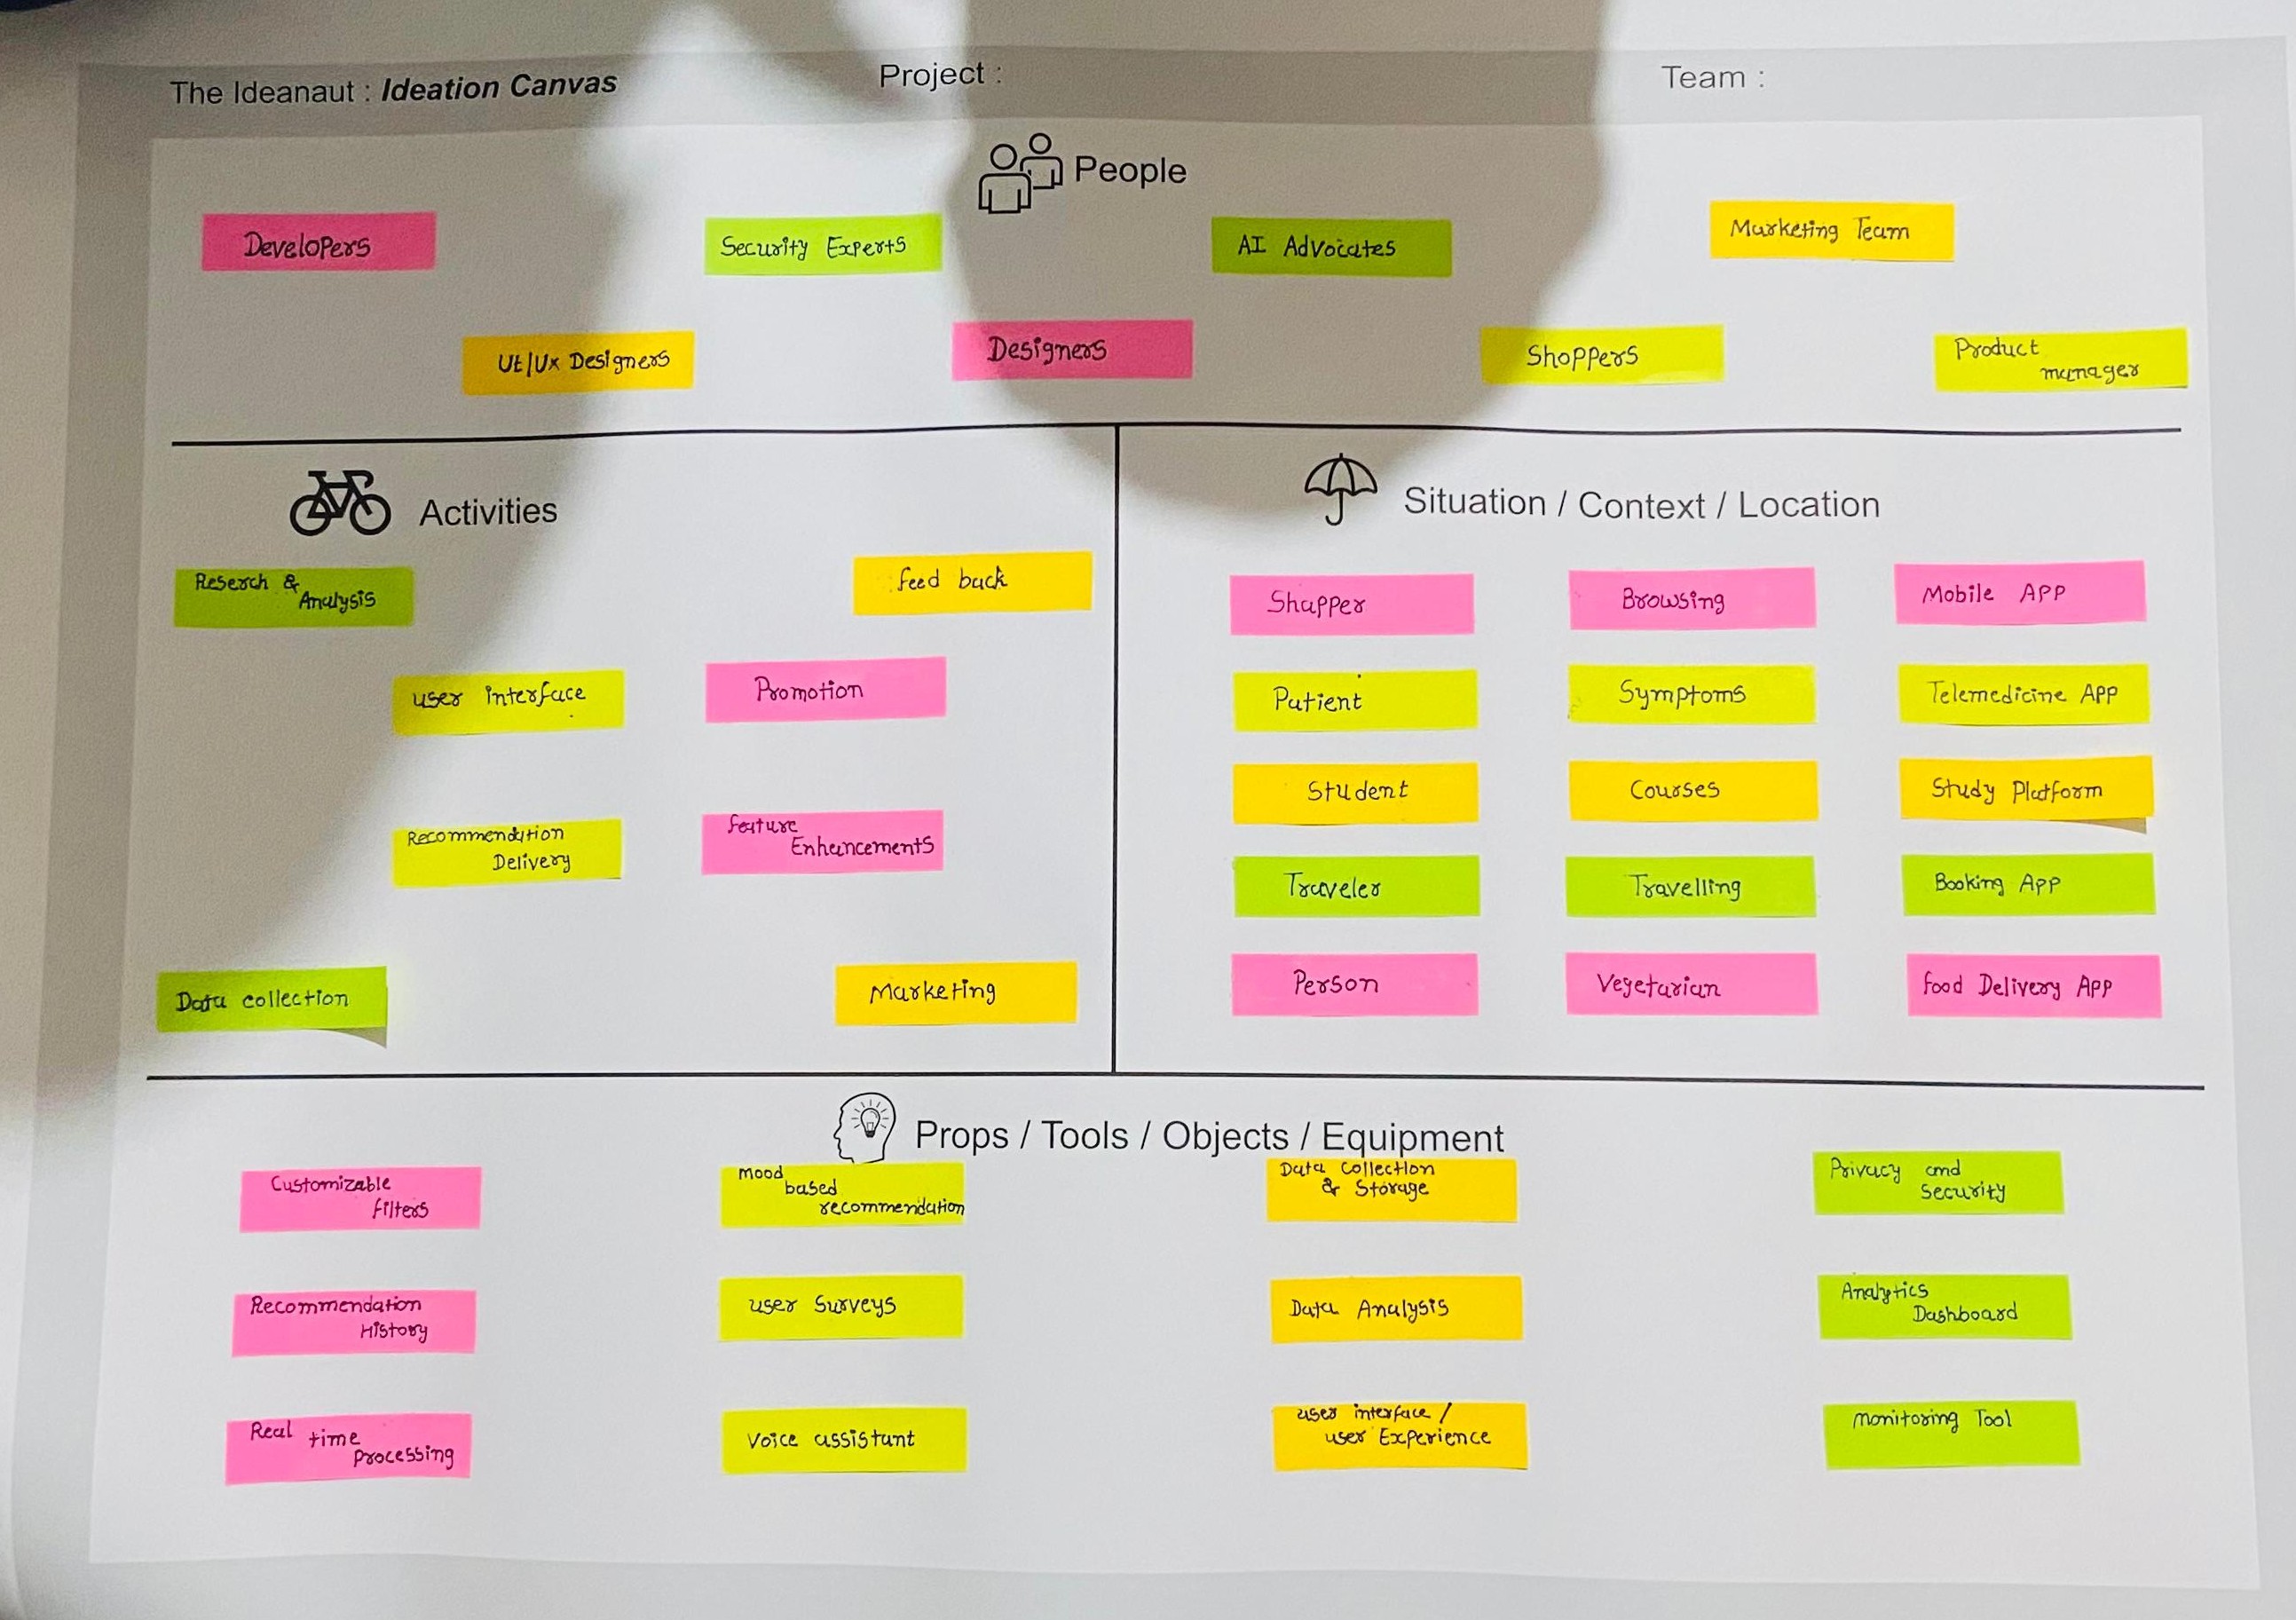 The Ideanaut : Ideation Canvas
Project :
Team :
People
Developers
Security Experts
AI Advocates
Marketing Team
UI/Ux Designers
Designers
Shoppers
Product
manager
Activities
Reserch &
Analysis
feed back
user interface
Promotion
Recommendation
Delivery
feature
Enhancements
Data collection
Marketing
Situation / Context / Location
Shapper
Browsing
Mobile APP
Patient
Symptoms
Telemedicine APP
Student
Courses
Study Platform
Traveler
Travelling
Booking APP
Person
Vegetarian
food Delivery APP
Props / Tools / Objects / Equipment
Customizable
filters
mood
based
recommendation
Data Collection
& Storage
Privacy and
Security
Recommendation
History
user Surveys
Data Analysis
Analytics
Dashboard
Real time
Processing
Voice assistant
user interface /
user Experience
monitoring Tool